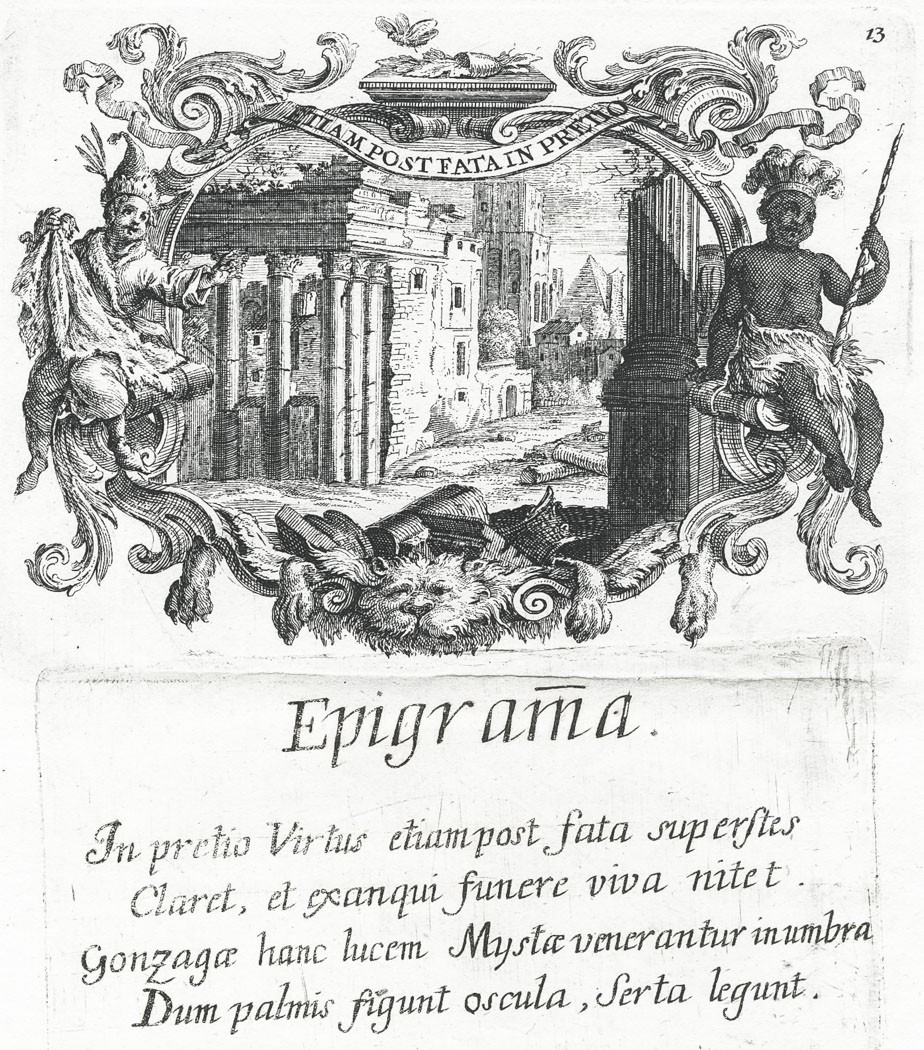 13
ETIAM POST FATA IN PRETIO
Epigram̄a.
In pretio Virtus etiam post fata superſtes
Claret, et exanqui funere viva nitet.
Gonzagæ hanc lucem Mystæ venerantur in umbra
Dum palmis figunt oscula, Serta legunt.